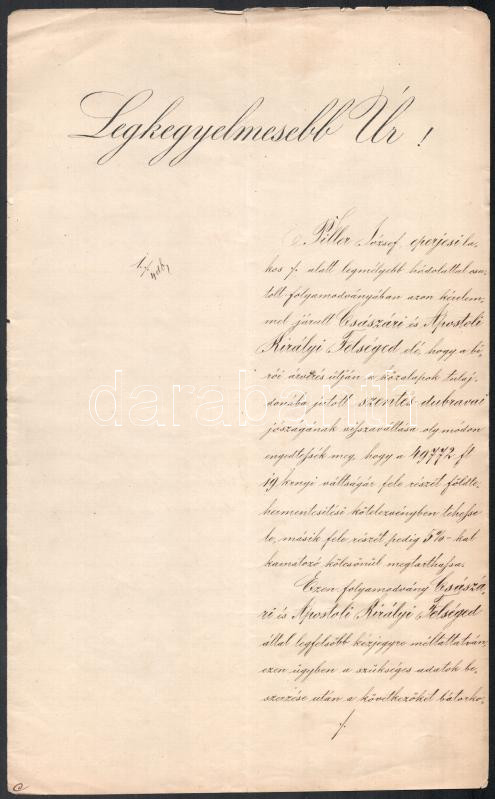 Legkegyelmesebb Úr!
Piller József eperjesi la-
kos /. alatt legmélyebb hódolattal csa-
tolt folyamodványában azon kérelem-
mel járult Császári és Apostoli
Királyi Felséged elé, hogy a bi-
rói árverés útján a közalapok tulaj-
donába jutott szentes-dubravai
jószágának visszaváltása oly modon
engedtessék meg, hogy a 49772 ft
19 krnyi váltságár fele részét földte-
hermentesitési kötelezvényben tehesse
le, másik fele részét pedig 5%-kal
kamatozó kölcsönül megtarthassa.
Ezen folyamodvány Császá-
ri és Apostoli Királyi Felséged
által legfelsőbb kézjegyre méltattatván,
ezen ügyben a szükséges adatok be-
szerzése után a következőket bátorko-
/.
darabanth